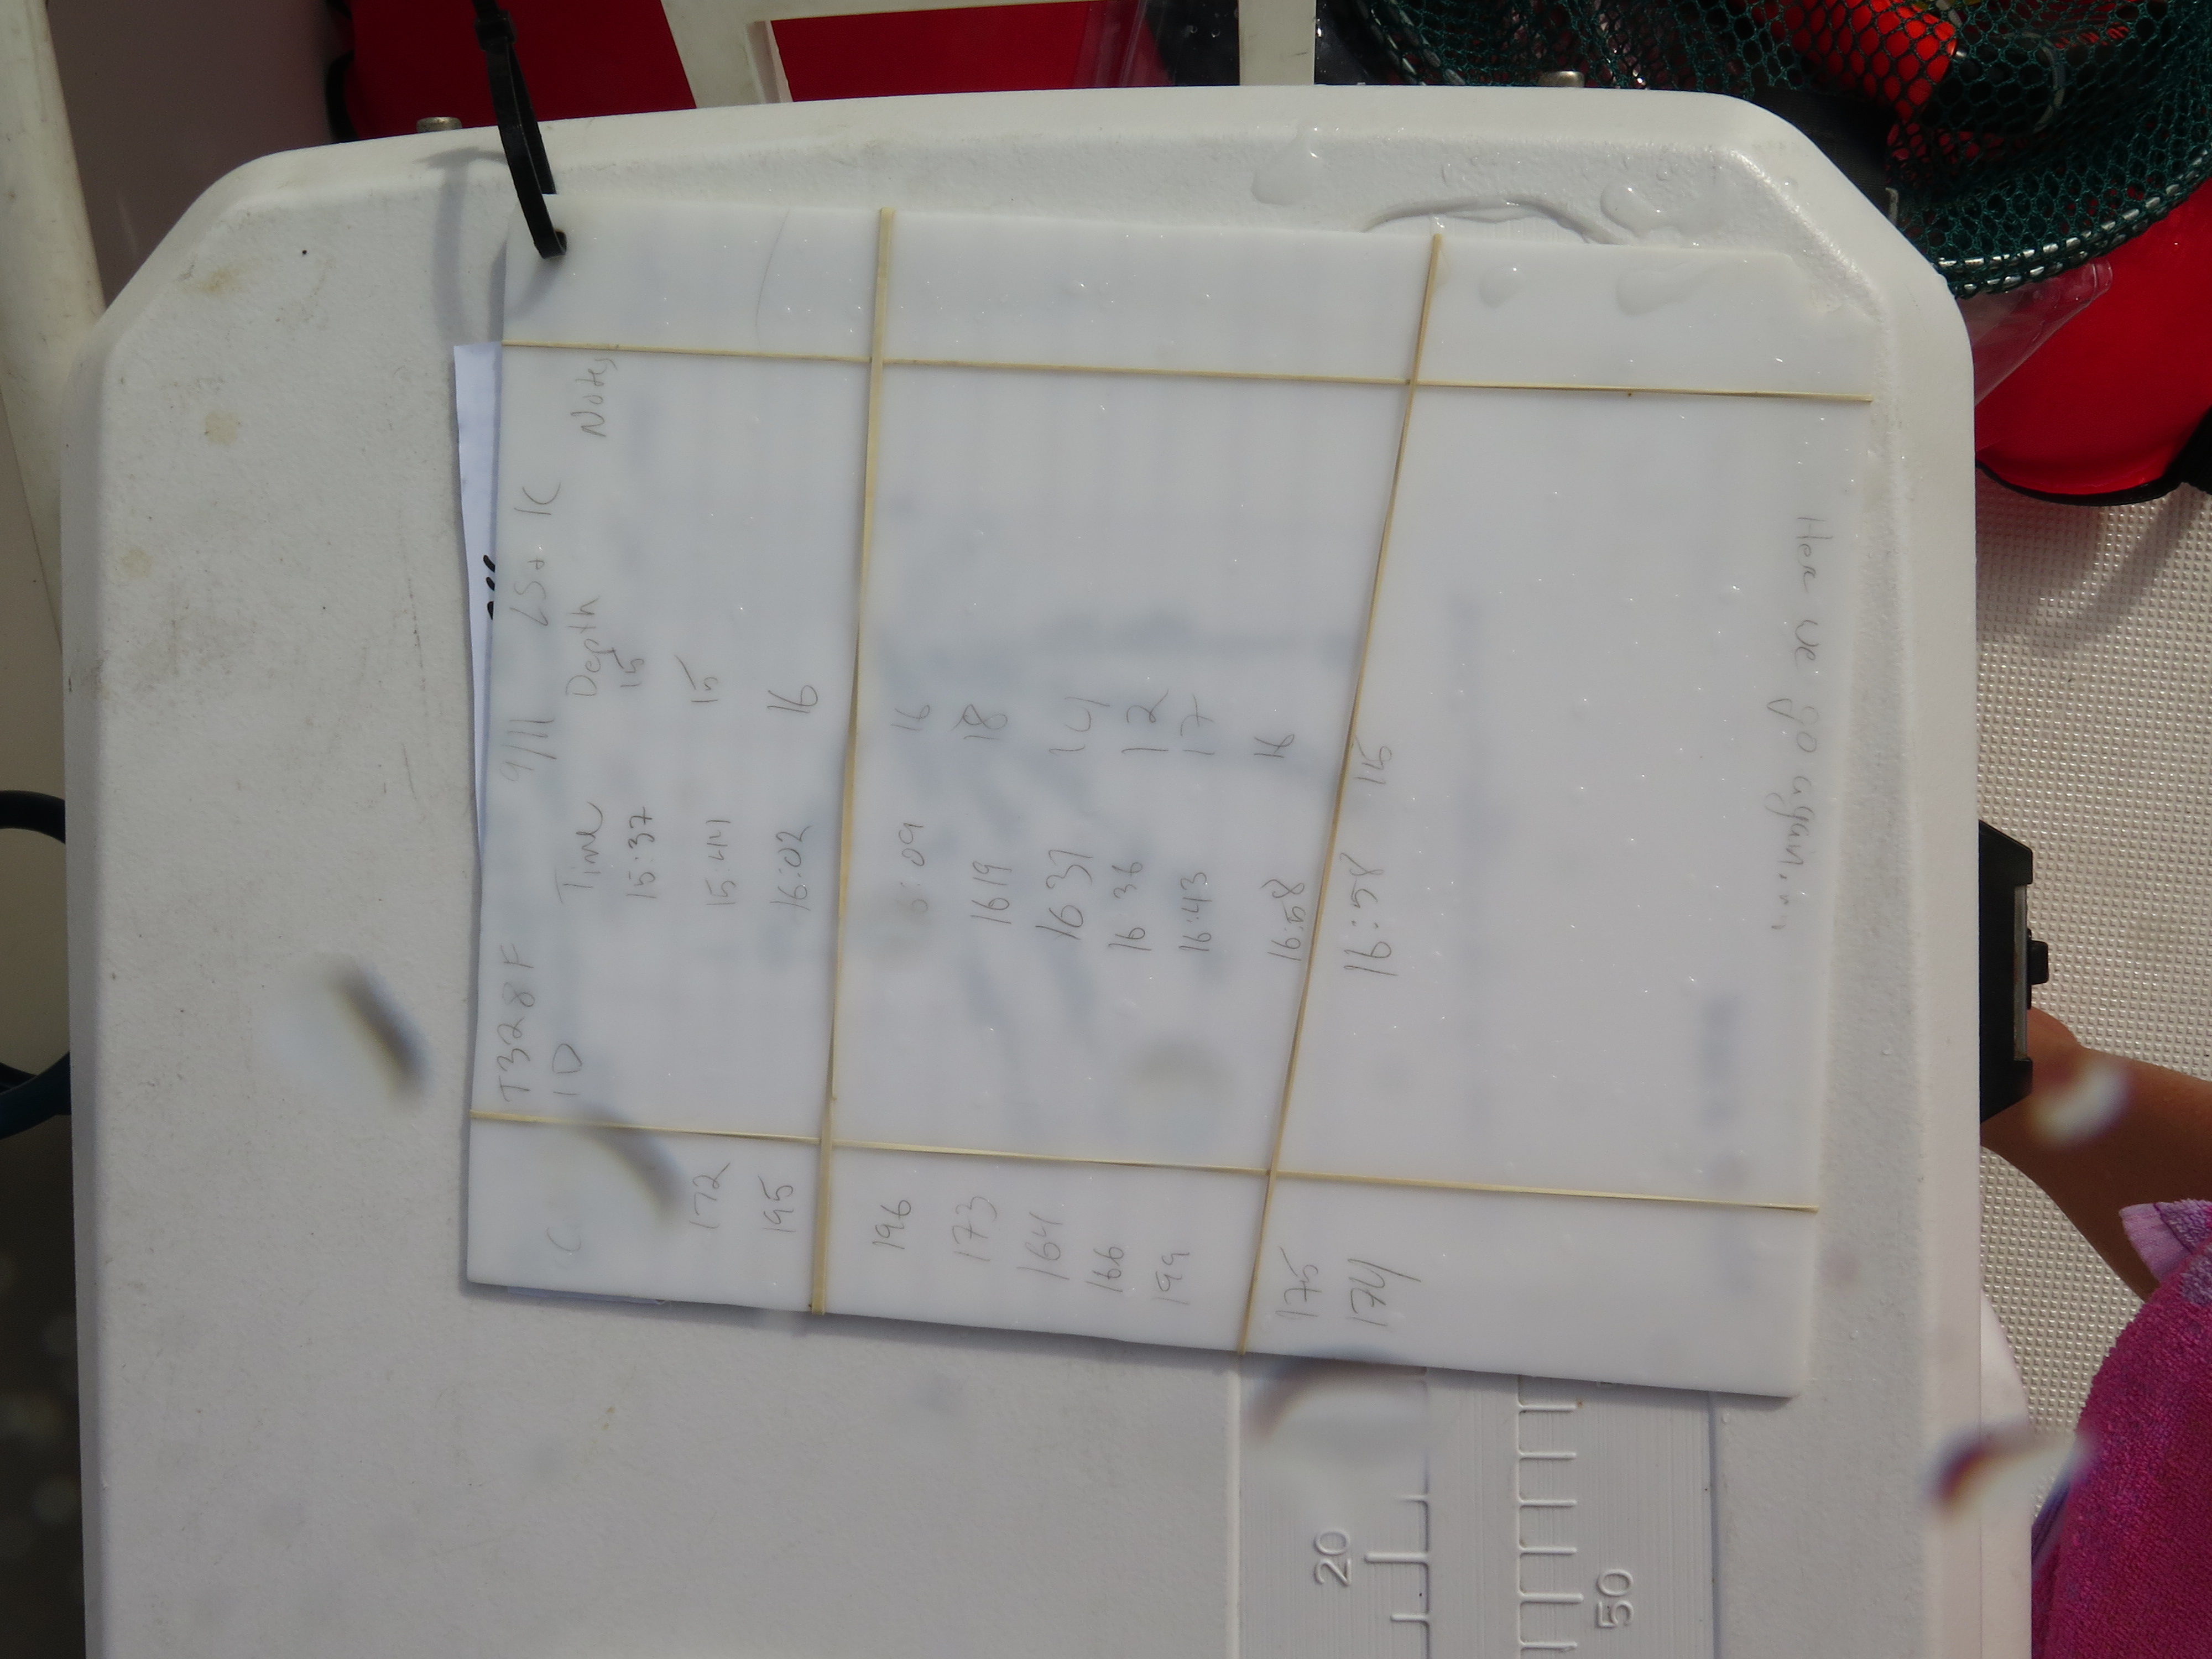 T328F 9/11 LS + K
ID Time Depth Notes
15:37 15
172 15:44 15
195 16:02 16
196 16:09 16
173 1619 18
164 1631 14
166 16 36 12
199 16:43 17
175 16:58 16
174 16:58 15
Here we go again...
20
50